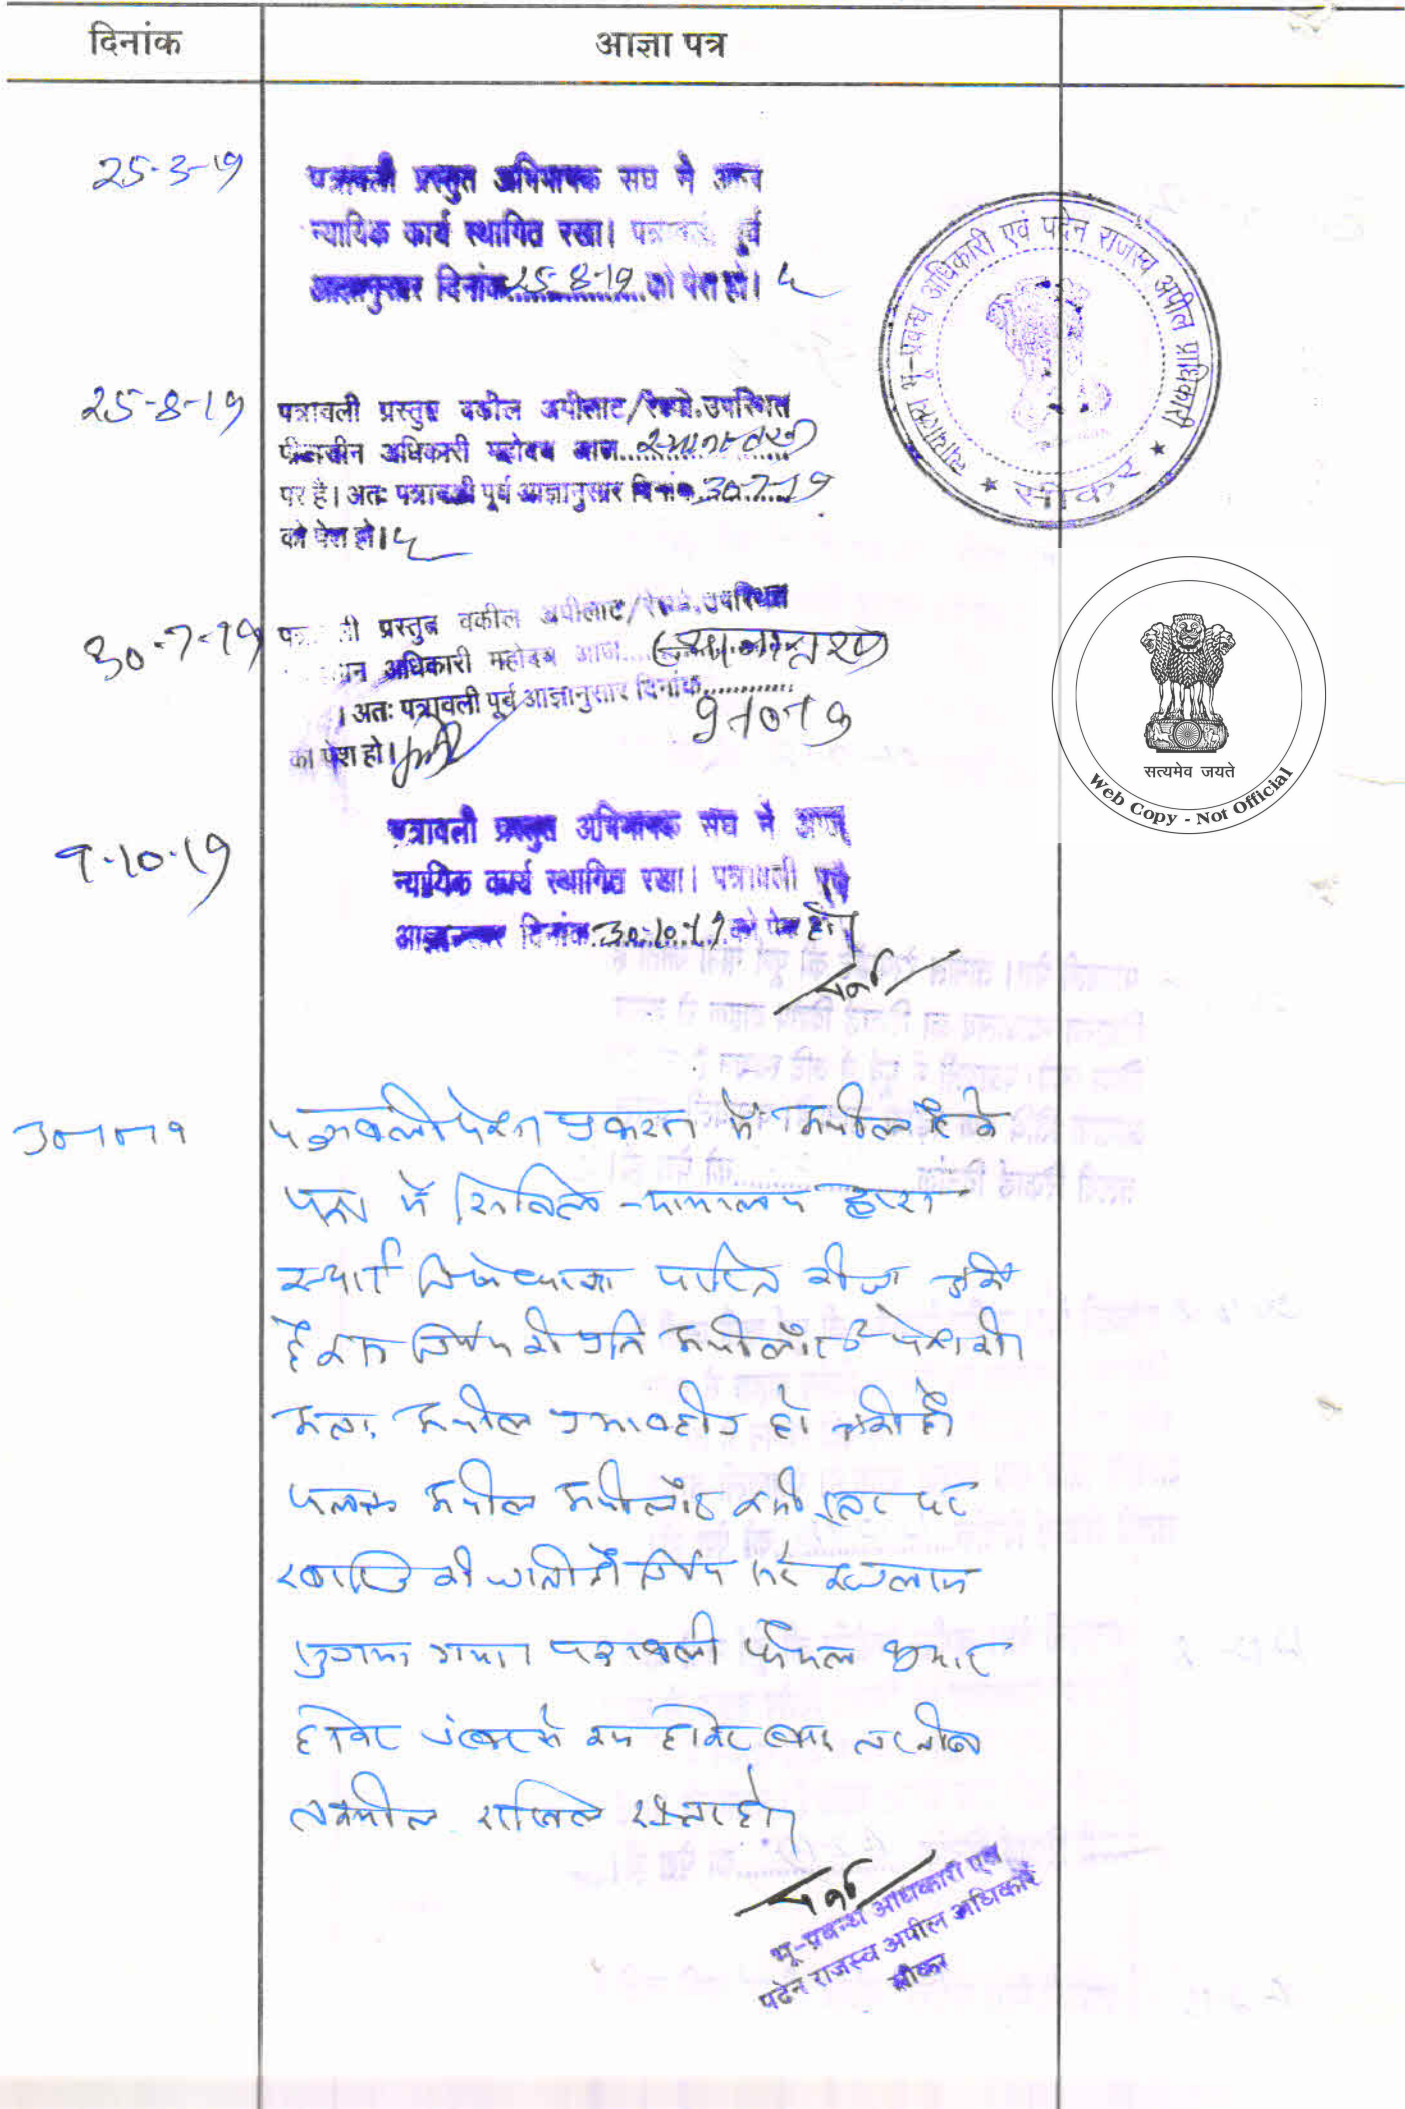 दिनांक
आज्ञा पत्र
25-3-19
पत्रावली प्रस्तुत अभिभाषक संघ ने आज
न्यायिक कार्य स्थागित रखा। पत्रावली पूर्व
आज्ञानुसार दिनांक 25-8-19 को पेश हो।
न्यायालय भू-प्रबन्ध अधिकारी एवं पदेन राजस्व अपील प्राधिकारी
★ सीकर ★
25-8-19
पत्रावली प्रस्तुत वकील अपीलाट/रेस्पो.उपस्थित
पीठासीन अधिकारी महोदय आज
पर है। अतः पत्रावली पूर्व आज्ञानुसार दिनांक 30-7-19
को पेश हो।
30-7-19
प्रस्तुत वकील अपीलाट/रेस्पो.उपस्थित
अधिकारी महोदय आज
। अतः पत्रावली पूर्व आज्ञानुसार दिनांक
9-10-19
का पेश हो।
सत्यमेव जयते
Web Copy - Not Official
9-10-19
पत्रावली प्रस्तुत अभिभाषक संघ ने आज
न्यायिक कार्य स्थागित रखा। पत्रावली पूर्व
आज्ञानुसार दिनांक 30-10-19 को पेश हो
30-10-19
पत्रावली पेश। प्रकरण में अपील के
में सिविल न्यायालय द्वारा
स्थाई निषेधाज्ञा पारित की जा चुकी
है निर्णय की प्रति अपीलांट ने पेश की।
अतः अपील प्रभावहीन हो चुकी है।
अपील अपीलांट इसी स्तर पर
खारिज की जाती है। निर्णय
सुनाया गया। पत्रावली फैसल शुमार
होकर नंबर से कम होकर बाद
तकमील दाखिल दफ्तर हो।
भू-प्रबन्ध अधिकारी एवं
पदेन राजस्व अपील अधिकारी
सीकर